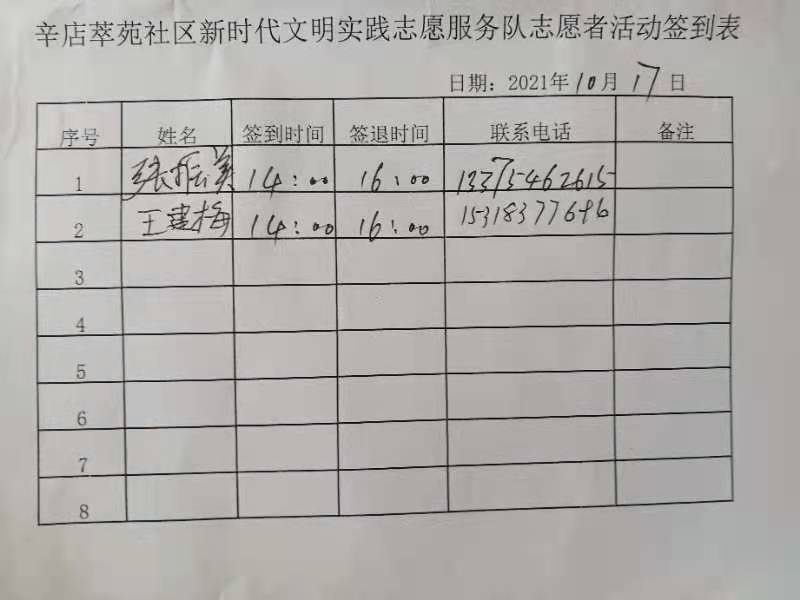 辛店萃苑社区新时代文明实践志愿服务队志愿者活动签到表
日期：2021年10月17日
序号 姓名 签到时间 签退时间 联系电话 备注
1 张振美 14:00 16:00 13375462615
2 王建梅 14:00 16:00 15318377696
3
4
5
6
7
8